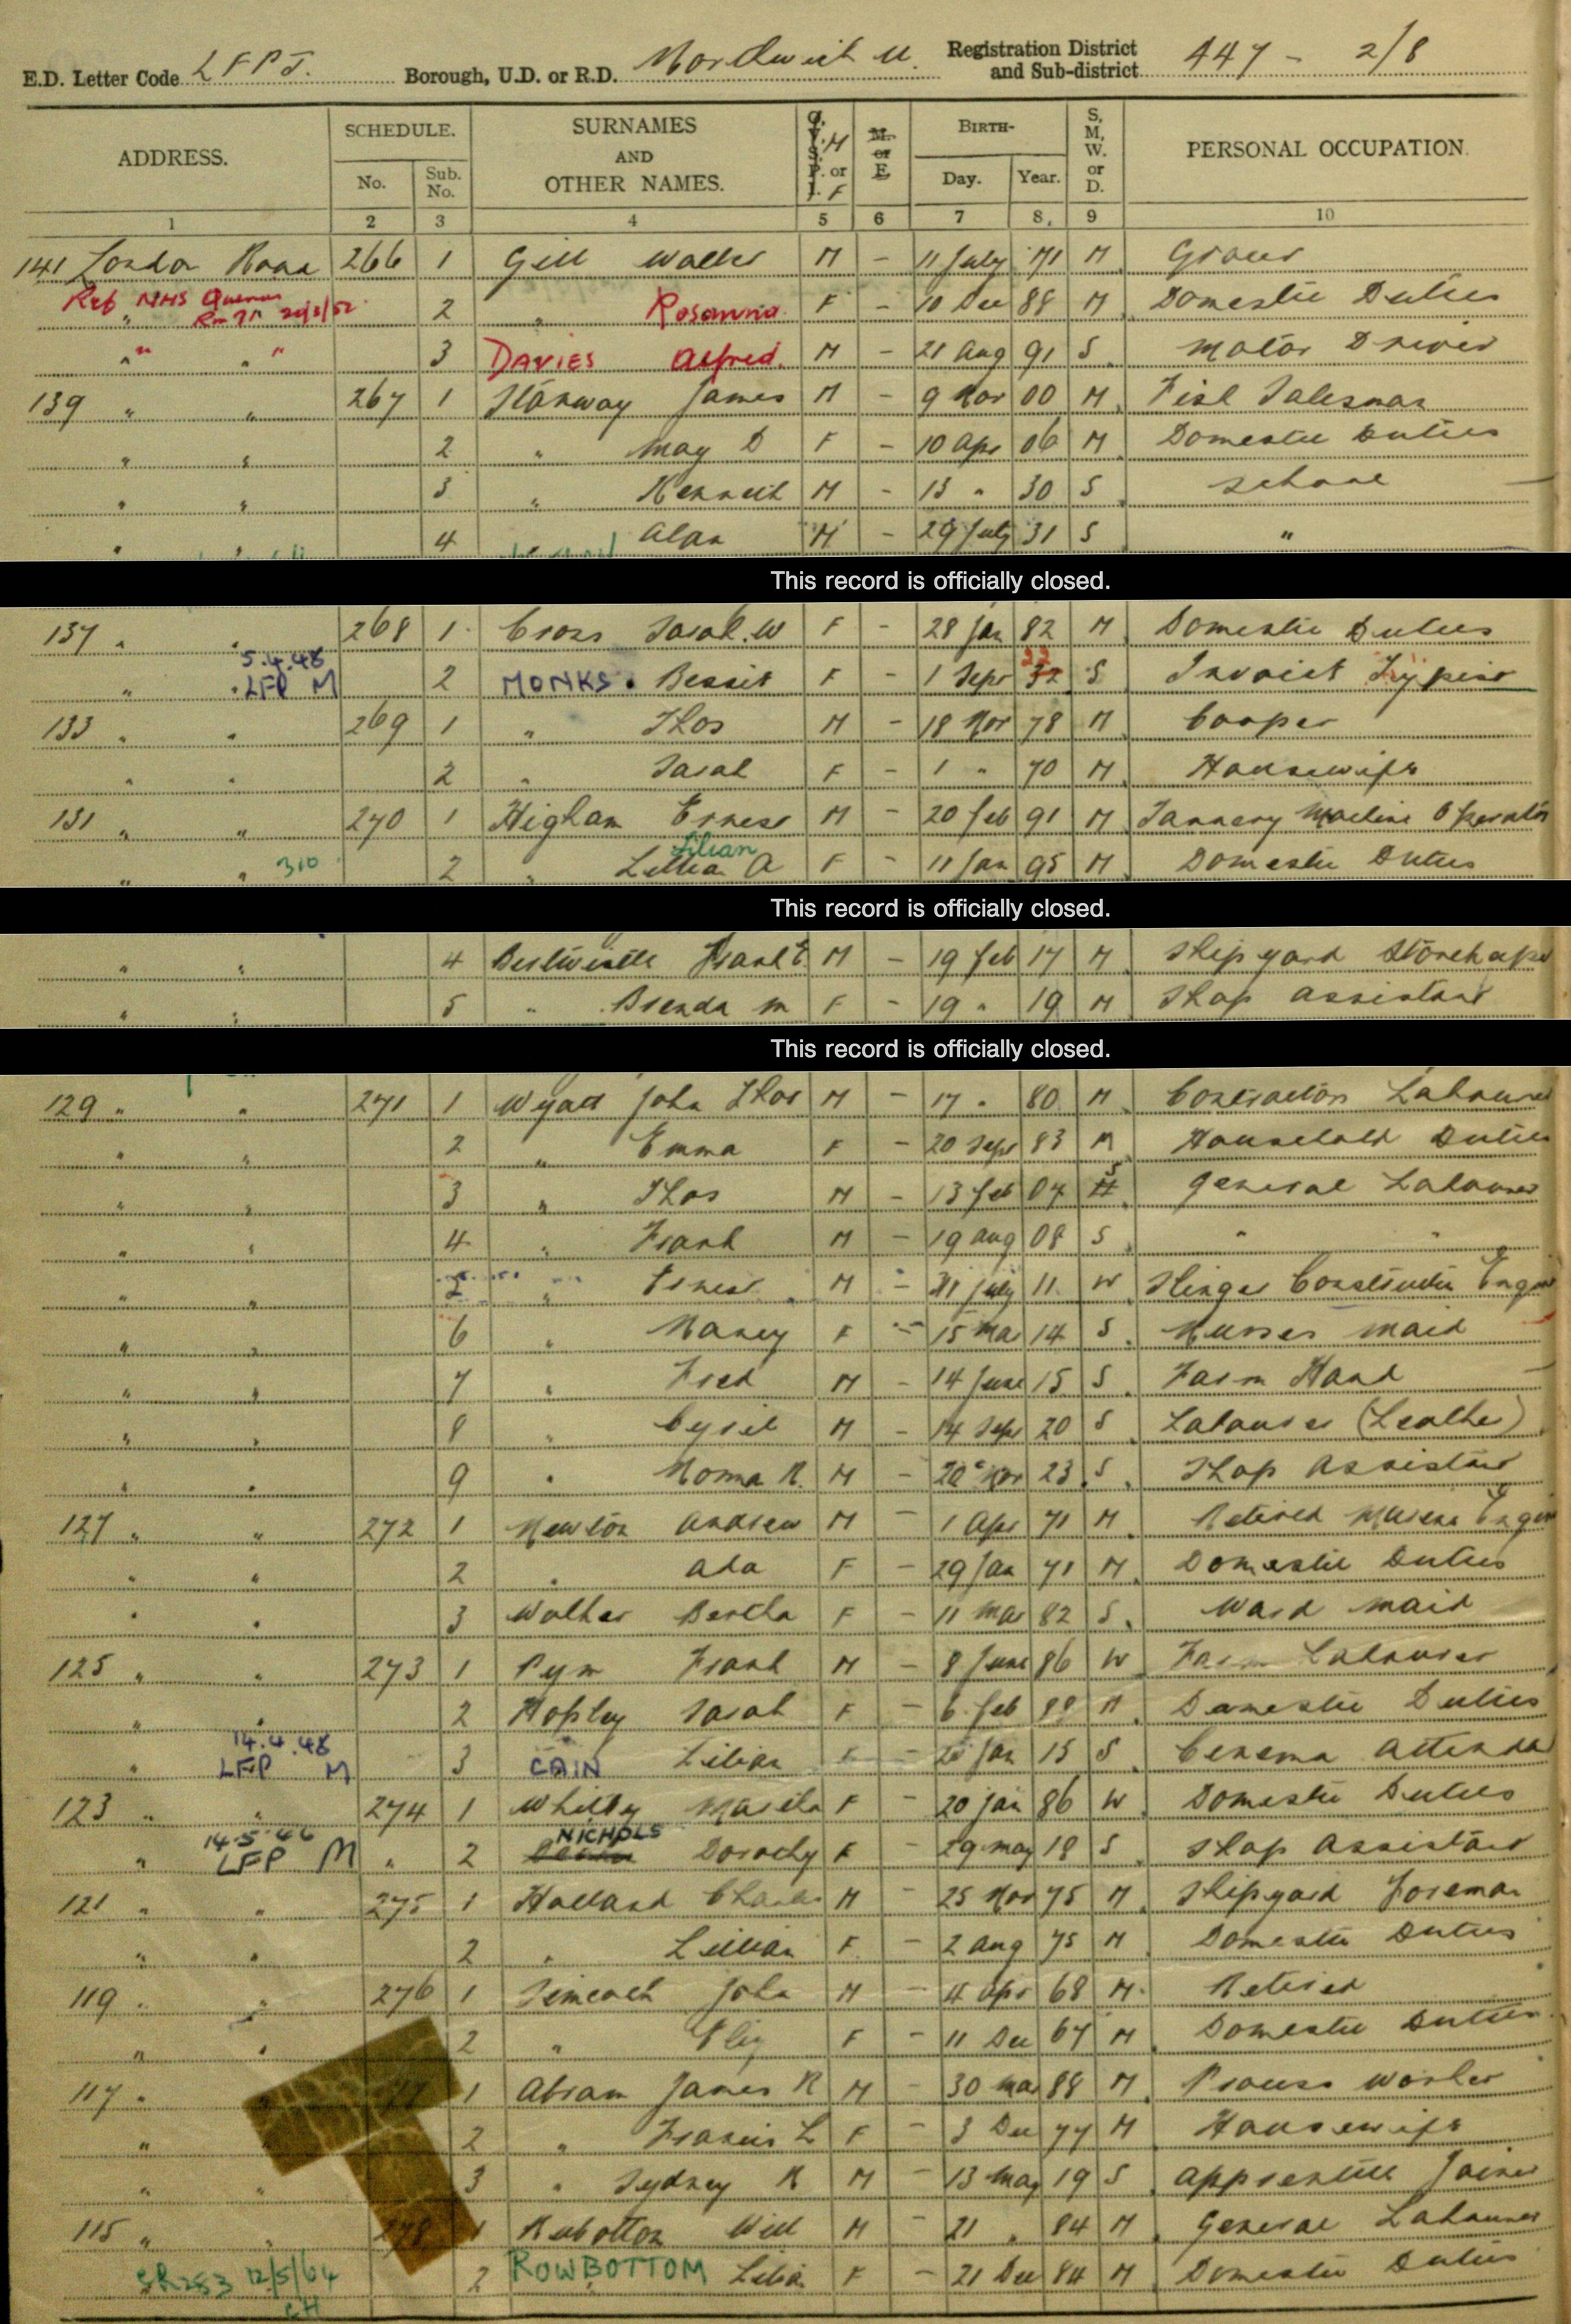 E.D. Letter Code LFPJ. Borough, U.D. or R.D. Northwich U. Registration District and Sub-district 447 - 2/8
ADDRESS. SCHEDULE. SURNAMES AND OTHER NAMES. O. V. S. P. or I. M F M. or F. BIRTH- S, M, W. or D. PERSONAL OCCUPATION.
No. Sub. No. Day. Year.
1 2 3 4 5 6 7 8. 9 10
141 London Road 266 1 Gill Walter M - 11 July 71 M Grocer
Ref NHS 20/3/52 " 2 " Rosanna F - 10 Dec 88 M Domestic Duties
" " 3 DAVIES Alfred. M - 21 Aug 91 S Motor Driver
139 " " 267 1 Stanway James M - 9 Nov 00 M Fish Salesman
" " 2 " May D F - 10 Apr 06 M Domestic Duties
" " 3 " Kenneth M - 13 " 30 S School
" " 4 " Alan M - 29 July 31 S "
This record is officially closed.
137 " " 268 1 Cross Sarah.W F - 28 Jan 82 M Domestic Duties
5.4.48
" " LFP M 2 MONKS. Bessie F - 1 Sept 32 22 S Invoice Typist
133 " " 269 1 " Thos M - 18 Nov 78 M Cooper
" " 2 " Sarah F - 1 " 70 M Housewife
131 " " 270 1 Higham Ernest M - 20 Feb 91 M Tannery Machine Operator
Lilian
" " 310 2 " Lillian A F - 11 Jan 95 M Domestic Duties
This record is officially closed.
" " 4 Frank E M - 19 Feb 17 M Shipyard Storekeeper
" " 5 " Brenda M F - 19 " 19 M Shop Assistant
This record is officially closed.
129 " " 271 1 Wyatt John Thos M - 17 " 80 M Contractors Labourer
" " 2 " Emma F - 20 Sept 83 M Household Duties
" " 3 " Thos M - 13 Feb 07 S General Labourer
" " 4 " Frank M - 19 Aug 08 S " "
" " 5 " Ernest M - 31 July 11 W Construction Engin
" " 6 " Nancy F - 15 Mar 14 S Nurses Maid
" " 7 " Fred M - 14 June 15 S Farm Hand
" " 8 " Cyril M - 14 Sept 20 S Labourer (Leather)
" " 9 " Norma R. M - 20 Nov 23 S Shop Assistant
127 " " 272 1 Newton Andrew M - 1 Apr 71 M Retired Marine Engin
" " 2 " Ada F - 29 Jan 71 M Domestic Duties
" " 3 Walker Bertha F - 11 Mar 82 S Ward Maid
125 " " 273 1 Pym Frank M - 8 June 86 W Farm Labourer
" " 2 Hopley Sarah F - 6 Feb 88 M Domestic Duties
14.4.48
" LFP M 3 CAIN Lilian F - 20 Jan 15 S Cinema Attendant
123 " " 274 1 Whitby Martha F - 20 Jan 86 W Domestic Duties
14.5.46 NICHOLS
" LFP M " 2 Dorothy F - 29 May 18 S Shop Assistant
121 " " 275 1 Holland Charles M - 25 Nov 75 M Shipyard Foreman
" " 2 " Lillian F - 2 Aug 75 M Domestic Duties
119 " " 276 1 Simcock John M - 4 Apr 68 M Retired
" " 2 " Eliz F - 11 Dec 67 M Domestic Duties
117 " 1 Abram James R M - 30 Mar 88 M Process Worker
" " 2 " Francis L F - 3 Dec 77 M Housewife
" " 3 " Sydney R M - 13 May 19 S Apprentice Joiner
115 " " 278 1 Rubotton Will M - 21 " 84 M General Labourer
SR283 12/5/64 2 ROWBOTTOM Lilian F - 21 Dec 84 M Domestic Duties